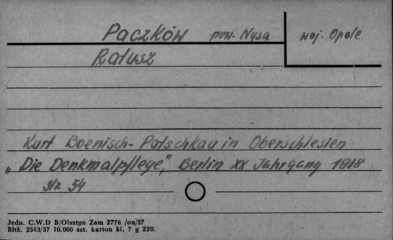 Paczków pow. Nysa woj. Opole
Ratusz
Kurt Boenisch-Patschkau in Oberschlesien
„Die Denkmalpflege", Berlin XX Jahrgang 1918
Str. 54
Jedn. C.W.D B/Olsztyn Zam 2776 /on/57
Bltk. 2563/57 10.000 szt. karton kl. 7 g 220.